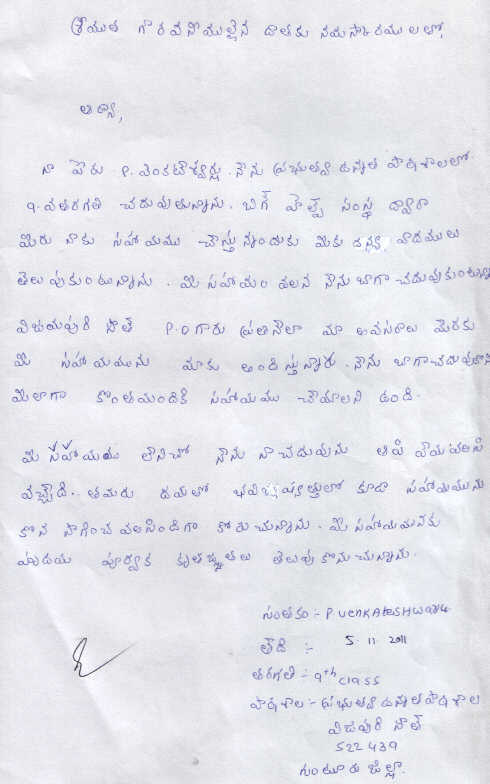 శ్రీయుత గౌరవనీయులైన దాతకు నమస్కారములతో,
ఆర్యా,
నా పేరు. P. వెంకటేశ్వర్లు. నేను ప్రభుత్వ ఉన్నత పాఠశాలలో
9. వతరగతి చదువుతున్నాను. బిగ్ హెల్ప్ సంస్థ ద్వారా
మీరు నాకు సహాయము చేస్తున్నందుకు మీకు ధన్య వాదములు
తెలుపుకుంటున్నాను. మీ సహాయం వలన నేను బాగా చదువుకుంటున్నా
విజయపురి సౌత్ P.O గారు ప్రతినెలా మా అవసరాల మేరకు
మీ సహాయమును మాకు అందిస్తున్నారు. నేను బాగాచదువుకొని
మీలాగా కొంతమందికి సహాయము చేయాలని ఉంది.
మీ సహాయము లేనిచో నేను నాచదువును ఆపి వేయవలసి
వచ్చేది. తమరు దయతో భవిష్యత్తులో కూడా సహాయమును
కొన సాగించ వలసిందిగా కోరుచున్నాను. మీ సహాయమునకు
హృదయ పూర్వక కృతజ్ఞతలు తెలుపుకొనుచున్నాను.
సంతకం :- P. VENKATESHWARLU
తేది :- 5 11 2011
తరగతి :- 9th class
పాఠశాల :- ప్రభుత్వ ఉన్నత పాఠశాల
విజపురి సౌత్
522439
గుంటూరు జిల్లా.